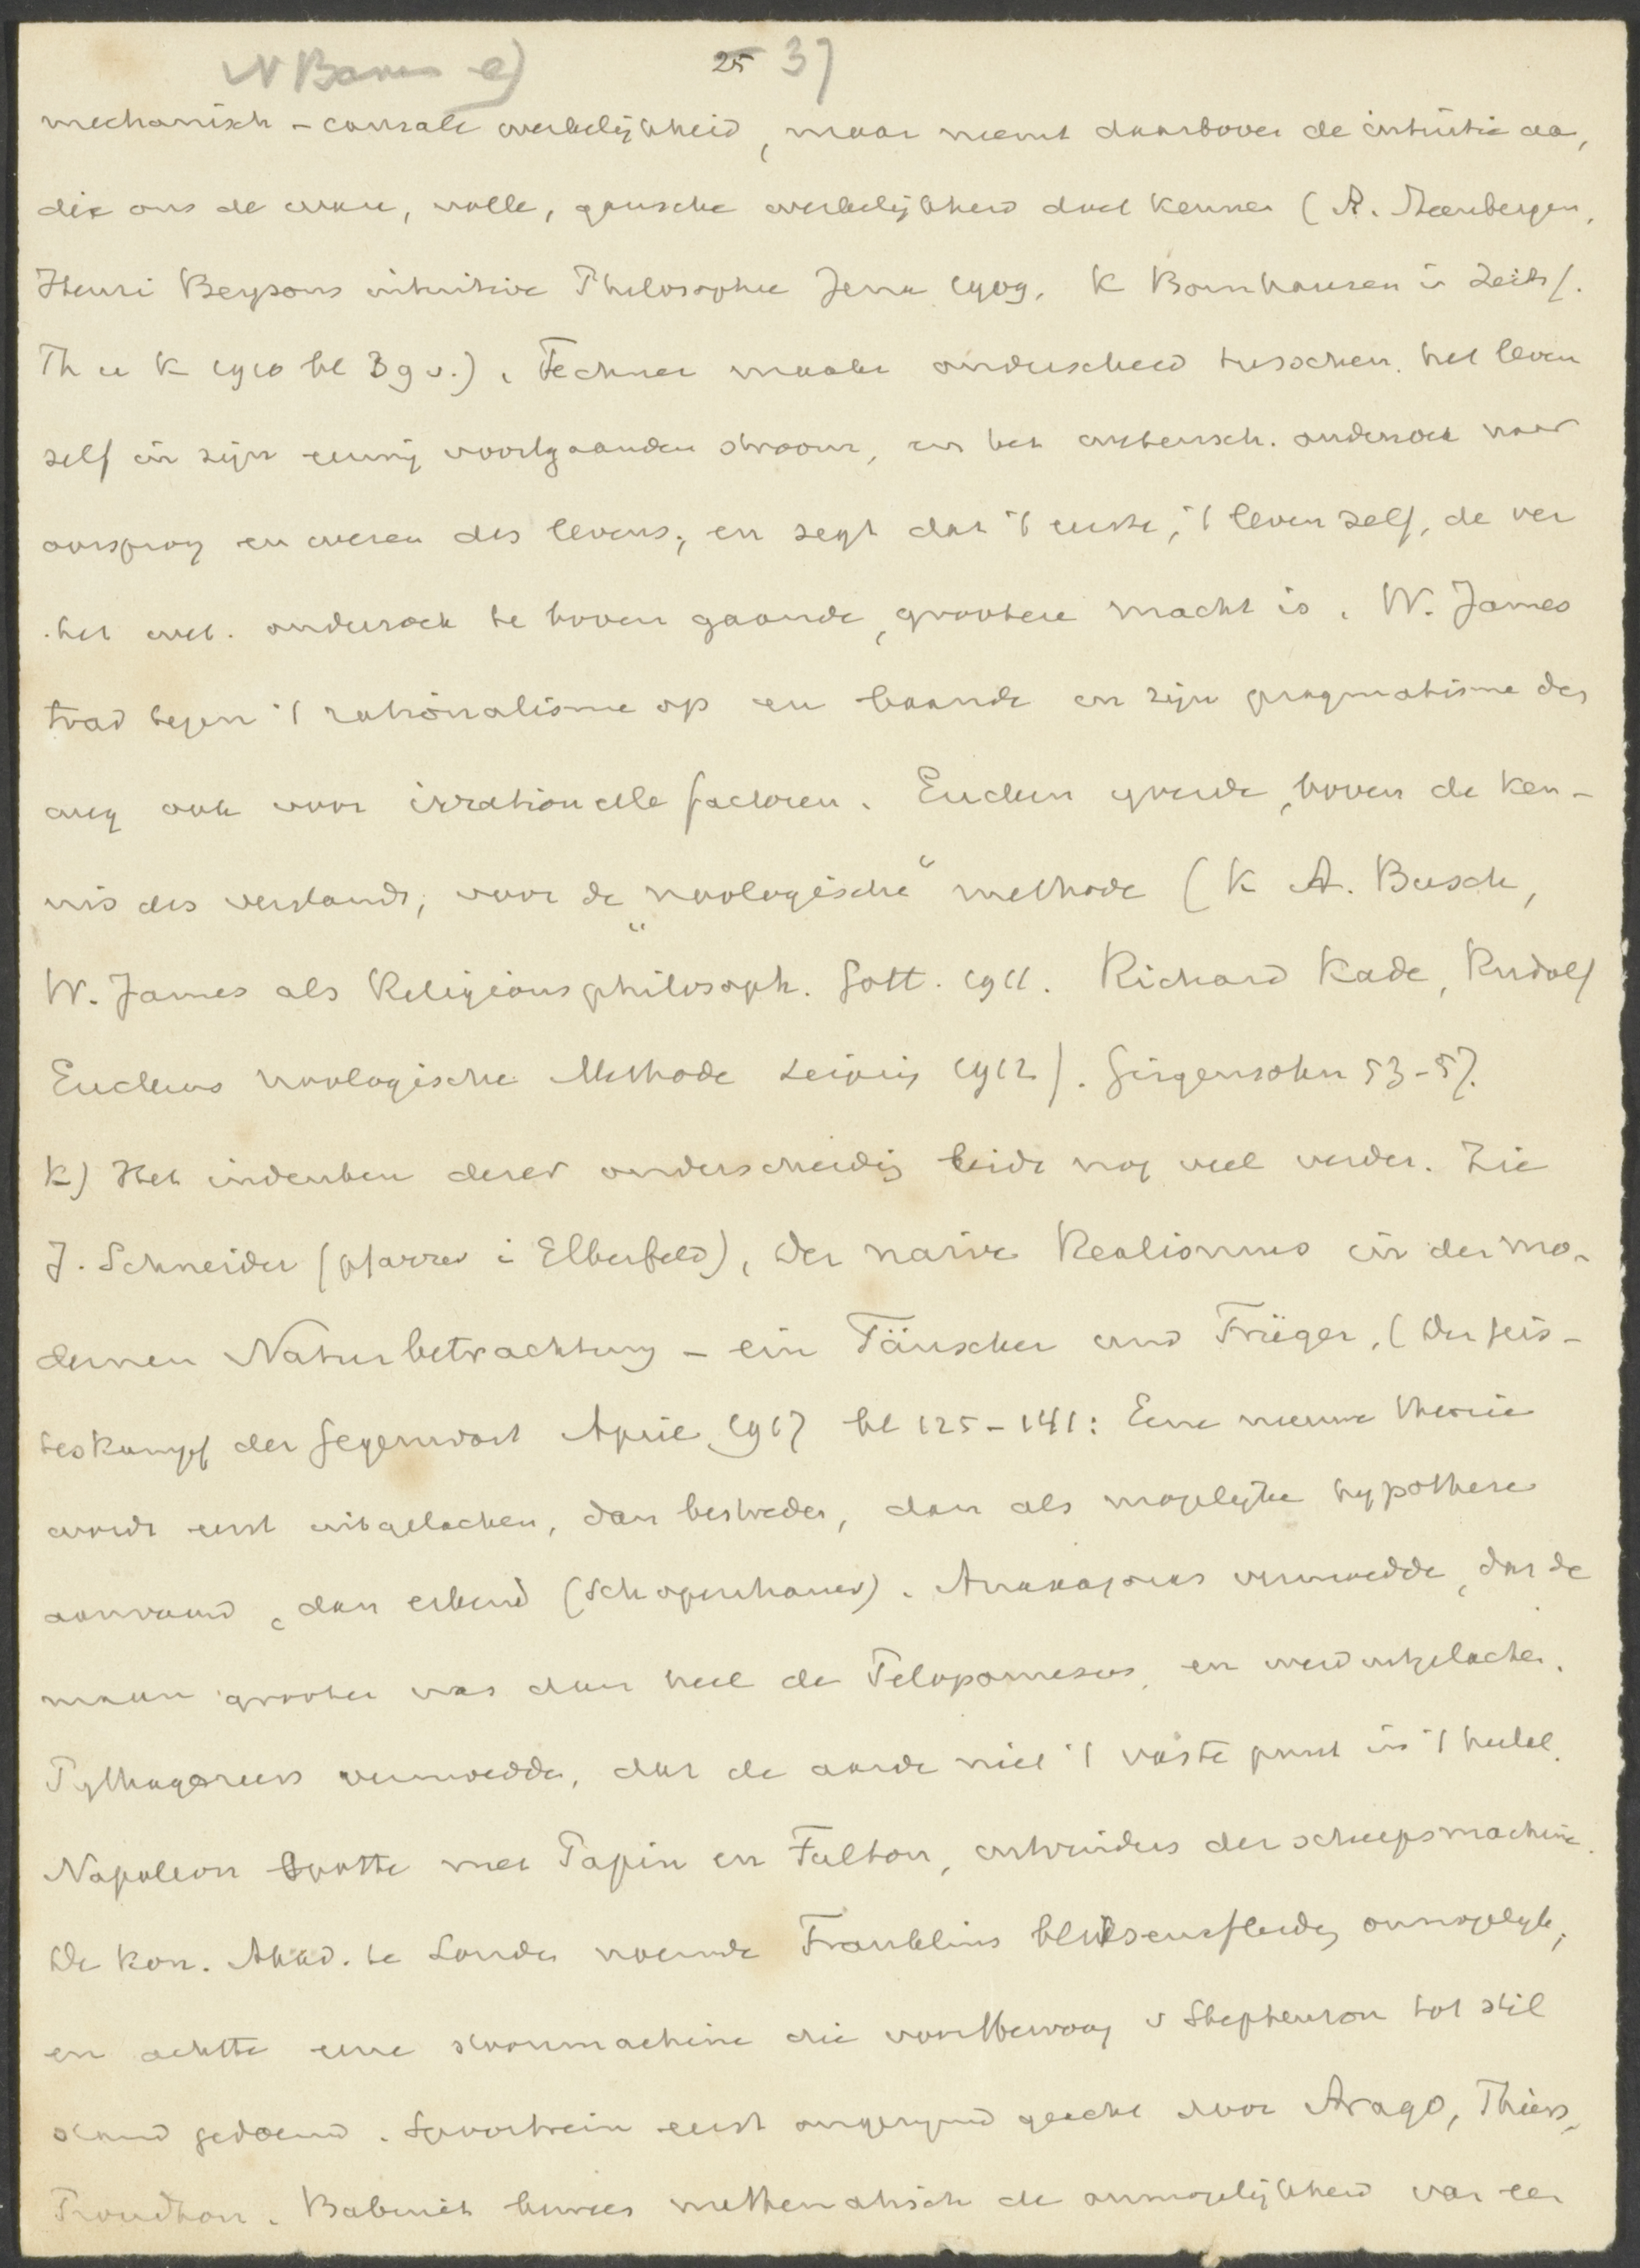 25 37
mechanisch-causale werkelijkheid, maar neemt daarboven de intuitie aa,
die ons de ware, volle, gansche werkelijkheid doet kennen (A. Steenbergen,
Henri Bergsons intuitive Philosophie Jena 1909. K Bornhausen in Zeits f.
Th u K 1910 bl 39 v.). Fechner maakt onderscheid tusschen het leven
zelf in zijn eeuwig voortgaanden stroom, en het wetensch. onderzoek naar
oorsprong en wezen des levens, en zegt dat 't eerste, 't leven zelf, de ver
het wet. onderzoek te boven gaande, grootere macht is. W. James
trad tegen 't rationalisme op en baande in zijn pragmatisme den
weg ook voor irrationelle factoren. Eucken ijverde, boven de ken-
nis des verstands, voor de „noologische“ methode (K A. Busch,
W. James als Religionsphilosoph. Gött. 1911. Richard Kade, Rudolf
Euckens noologische Methode Leipzig 1912). Girgensohn 53-57.
k) Het indenken dezer onderscheidig leidt nog veel verder. Zie
J. Schneider (pfarrer i Elberfeld), Der naive Realismus in der mo-
dernen Naturbetrachtung - ein Täuscher und Trüger, (Der Geis-
teskampf der Gegenwart April 1917 bl 125-141: Eene nieuwe theorie
wordt eerst uitgelachen, dan bestreden, dan als mogelijke hypothese
aanvaard, dan erkend (Schopenhauer). Anaxagoras vermoedde, dat de
maan grooter was dan heel de Peloponnesus, en werd uitgelachen.
Pythagoreers vermoedden, dat de aarde niet 't vaste punt in 't heelal.
Napoleon spotte met Papin en Fulton, uitvinders der scheepsmachine.
De Kon. Akad. te Londen noemde Franklins bliksemafleider onmogelijk,
en achtte eene stoommachine die voortbewoog v Stephenson tot stil
stand gedoemd. Spoortrein eerst ongerijmd geacht door Arago, Thiers,
Proudhon. Babinet bewees mathematisch de onmogelijkheid van een